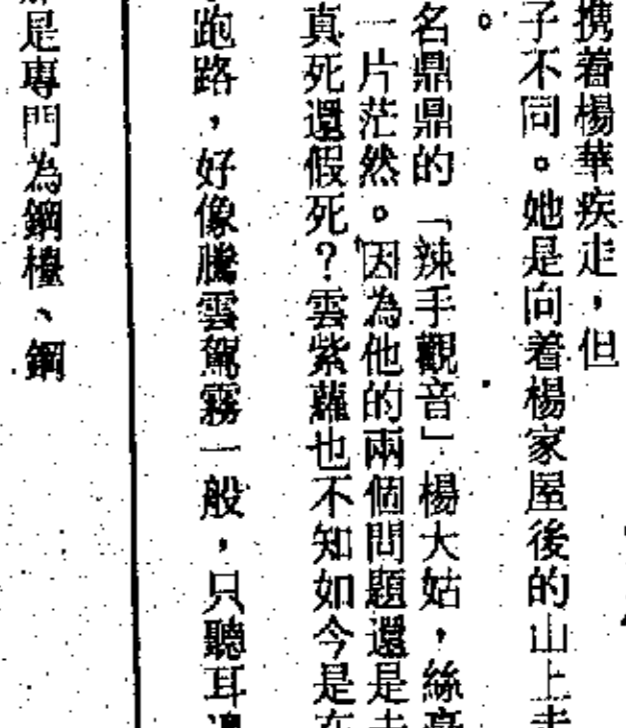 携着楊華疾走，但
子不同。她是向着楊家屋後的山上走
。
名鼎鼎的「辣手觀音」楊大姑，絲毫
一片茫然。因為他的兩個問題還是未
真死還假死？雲紫蘿也不知如今是在
跑路，好像騰雲駕霧一般，只聽耳邊
是專門為鋼檯、鋼